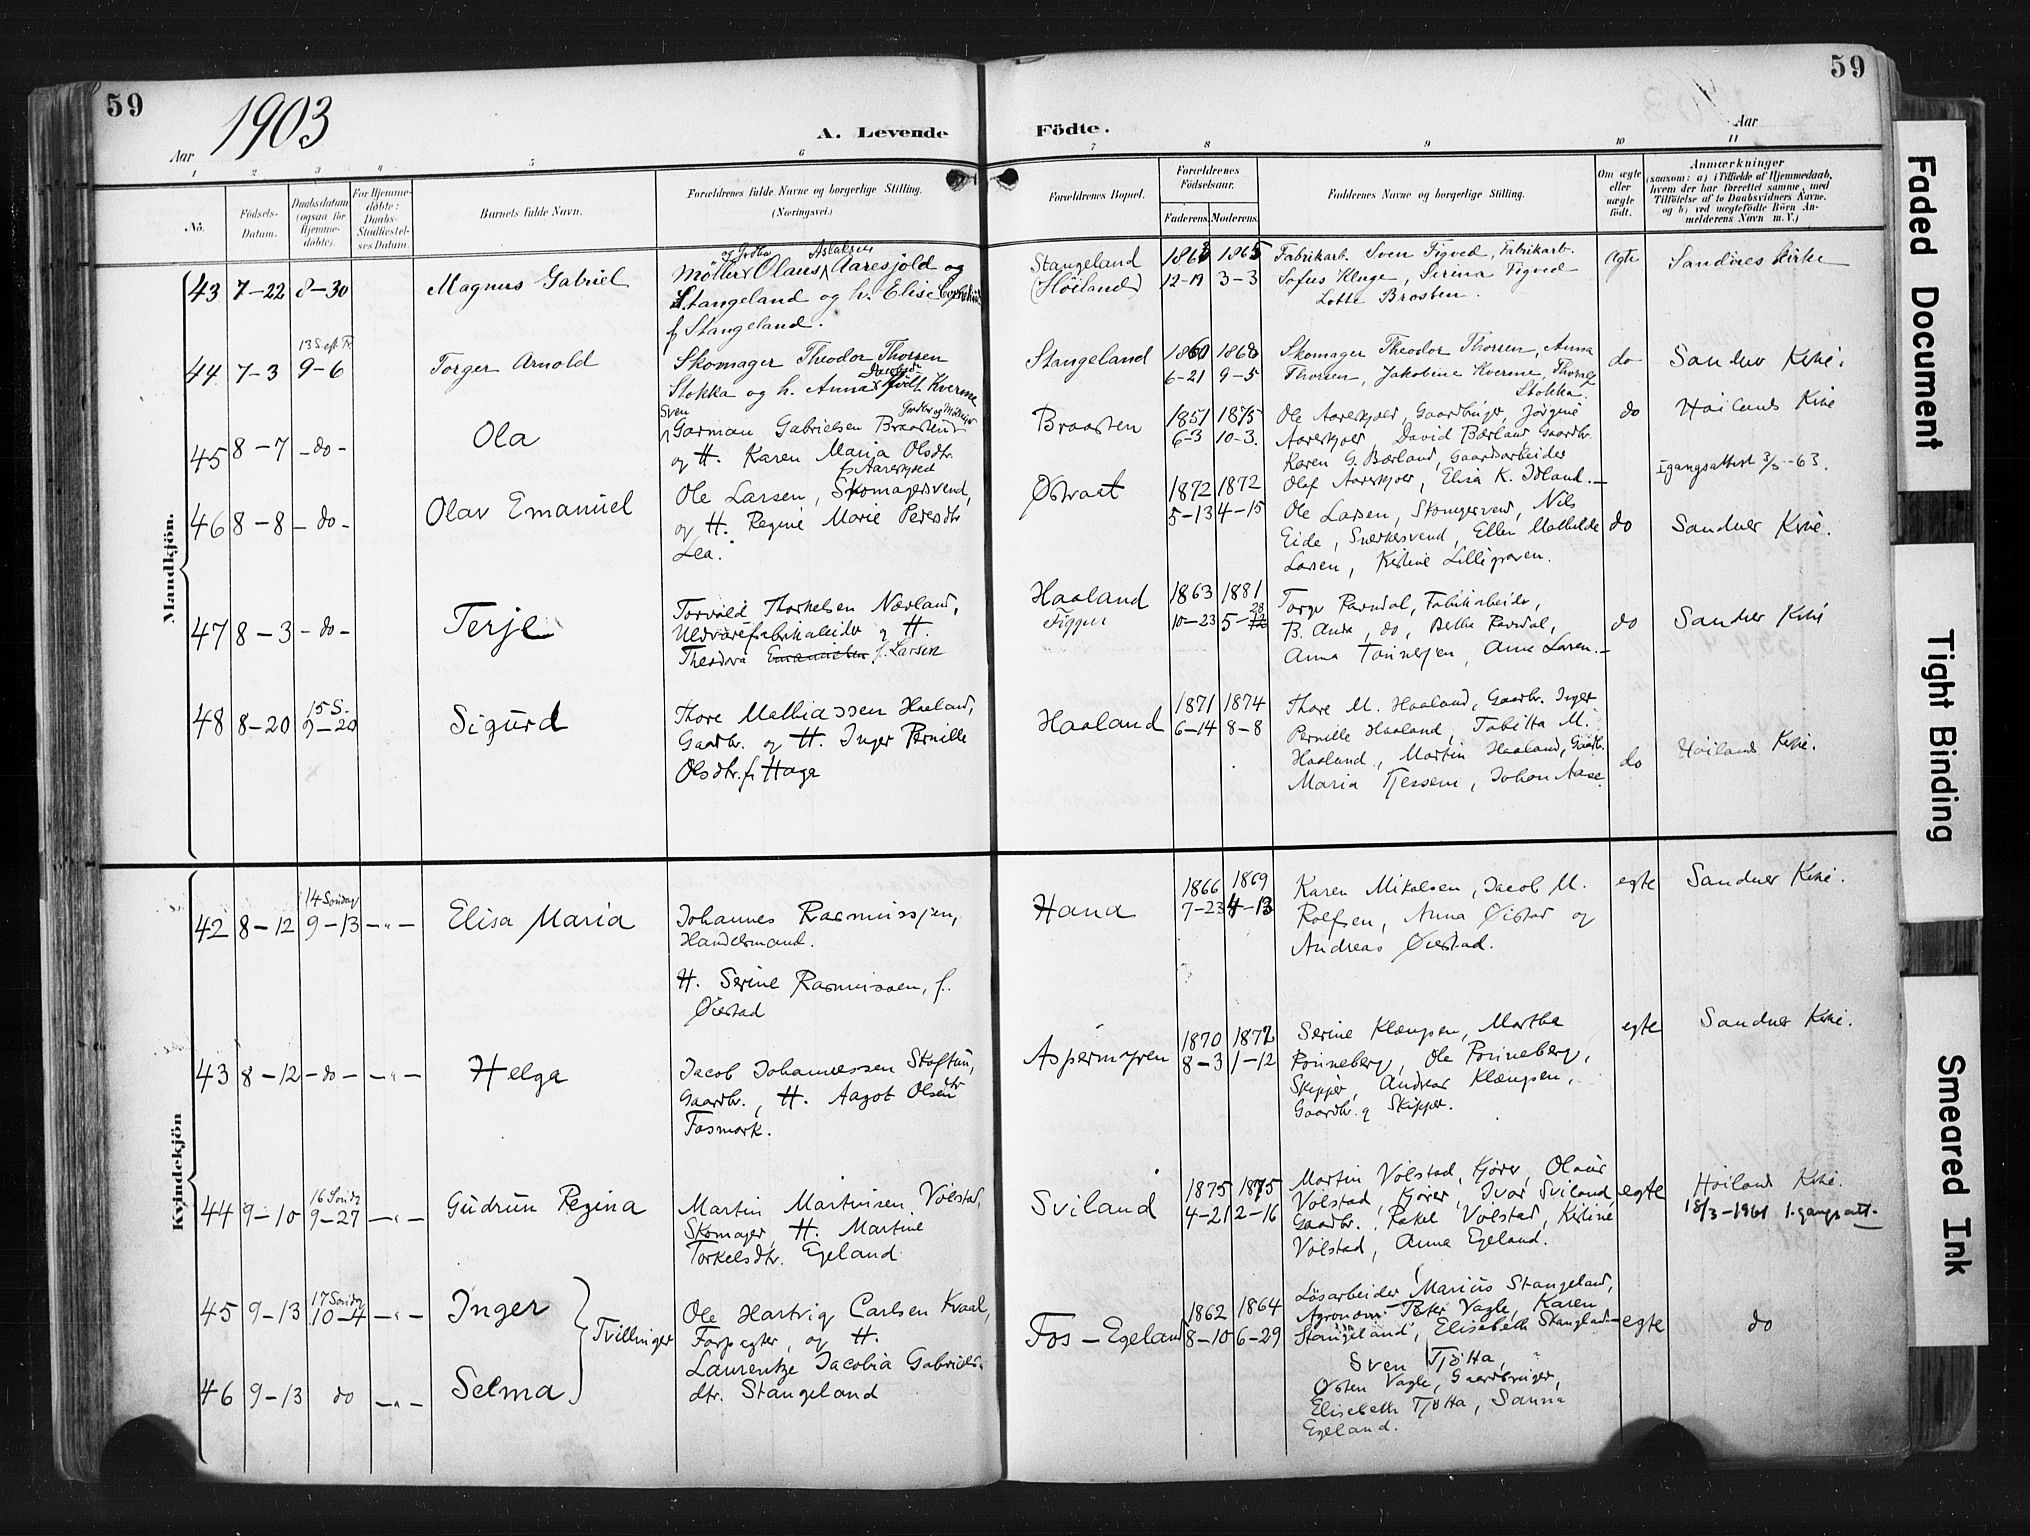 59
1903
Aar
A. Levende
Födte.
Aar
59
1 2 3 4 5 6 7 8 9 10 11
No.
Födsels-
Datum.
Daabsdatum
(ogsaa for
Hjemme-
döbte).
For Hjemme-
döbte:
Daabs-
Stadfæstel-
ses Datum.
Barnets fulde Navn.
Forældrenes fulde Navne og borgerlige Stilling.
(Næringsvei.)
Forældrenes Bopæl.
Forældrenes
Födselsaar.
Faderens. Moderens.
Faddernes Navne og borgerlige Stilling.
Om ægte
eller
uægte
födt.
Anmærkninger
(saasom: a) i Tilfælde af Hjemmedaab,
hvem der har forrettet samme, med
Tilföielse af to Daabsvidners Navne,
og b) ved uægtefödte Börn An-
melderens Navn m. V.)
Mandkjön.
43 7-22 8-30
Magnus Gabriel
og Grdbr Aslaksen
Möller Olaus Aaresjold og
Stangeland og h. Elise
f Stangeland.
Stangeland
(Höiland)
1863 1865
12-19 3-3
Fabrikarb. Sven Figved, Fabrikarb.
Sofus Kluge, Serina Figved
Lotte Brosten.
Ægte
Sandnes Kirke
44 7-3 13 S. eft. Tr. 9-6
Torger Arnold
Skomager Theodor Thorsen
Stokka og h. Anna Jacobsdr födt Kverme
Stangeland
1860 1868
6-21 9-5
Skomager Theodor Thorsen, Anna
Thorsen, Jakobine Kverme, Thorval
Stokka.
do
Sandnes Kirke.
45 8-7 -do-
Ola
Sven
Garman Gabrielsen Braasten
og H. Karen Maria Olsdtr.
f. Aareskjold
Braasten
1851 1875
6-3 10-3.
Ole Aareskjold, Gaardbruger, Jørgine
Aareskjold, David Bærland Gaardbr.
Karen G. Bærland, Gaardarbeider
Olaf Aareskjold, Elisa K. Idland.-
do
Höilands Kirke
Igangsattest 3/5-63.
46 8-8 -do-
Olav Emanuel
Ole Larsen, Skomagersvend,
og H. Regine Marie Pedersdtr
Lea.
Østraat
1872 1872
5-13 4-15
Ole Larsen, Skomgersvend, Nils
Eide, Snekkersvend, Ellen Mathilde
Larsen, Kristine Lilligraven.
do
Sandnes Kirke.
47 8-3 -do-
Terje
Torvald Thorkelsen Nærland,
Uldvarefabrikabeider og H.
Theodora Emanuelsen f. Larsen
Haaland
Figgen
1863 1881
10-23 5-28
Torger Ravndal, Fabrikabeider,
B. Anda, do, Bertha Ravndal,
Anna Tønnesen, Ane Larsen.-
do
Sandnes Kirke
48 8-20 15 S. 9-20
Sigurd
Thore Mathiassen Haaland,
Gaardbr. og H. Inger Pernille
Olsdtr. f. Hage
Haaland
1871 1874
6-14 8-8
Thore M. Haaland, Gaardbr. Inger
Pernille Haaland, Tabitta M.
Haaland, Martin Haaland, Gaardb.
Maria Tjessem, Johan Aase.
do
Höilands Kirke.
Kvindekjön
42 8-12 14 Søndag 9-13 -"-
Elisa Maria
Johannes Rasmussen,
Handelsmand.
H. Serine Rasmussen, f.
Øiestad
Hana
1866 1869
7-23 4-13
Karen Mikalsen, Jacob M.
Rolfsen, Anna Øistad og
Andreas Øiestad.
egte
Sandnes Kirke.
43 8-12 -do- -"-
Helga
Jacob Johannessen Skoftun,
Gaardbr., H. Aagot Olsen
Fosmork.
Aspermyren
1870 1872
8-3 1-12
Serine Klængsen, Martha
Ponneberg, Ole Ponneberg,
Skipper, Andreas Klængsen,
Gaardbr. og Skipper.
egte
Sandnes Kirke.
44 9-10 16 Søndg 9-27 -"-
Gudrun Regina
Martin Martinsen Volstad,
Skomager, H. Martine
Torkelsdtr. Egeland
Sviland
1875 1875
4-21 2-16
Martin Volstad, Kjører, Olaus
Volstad, Kjører, Ivar Sviland,
Gaardbr., Rakel Volstad, Kirstine
Volstad, Anna Egeland.
egte
Höilands Kirke.
18/3-1961 I-gangsatt.
45 9-13 17 Søndg 10-4 -"-
Inger
Tvillinger
Ole Hartvig Carlsen Kvaal,
Forpagter, og H.
Laurentze Jacobia Gabriels-
dtr. Stangeland
Fos-Egeland
1862 1864
8-10 6-29
Løsarbeider Marius Stangeland,
Agronom Peter Vagle, Karen
Stangeland, Elisabeth Stangeland-
Sven Tjötta,
Østen Vagle, Gaardbruger,
Elisabeth Tjötta, Sanna
Egeland.
egte
do
46 9-13 do -"-
Selma
Faded Document
Tight Binding
Smeared Ink